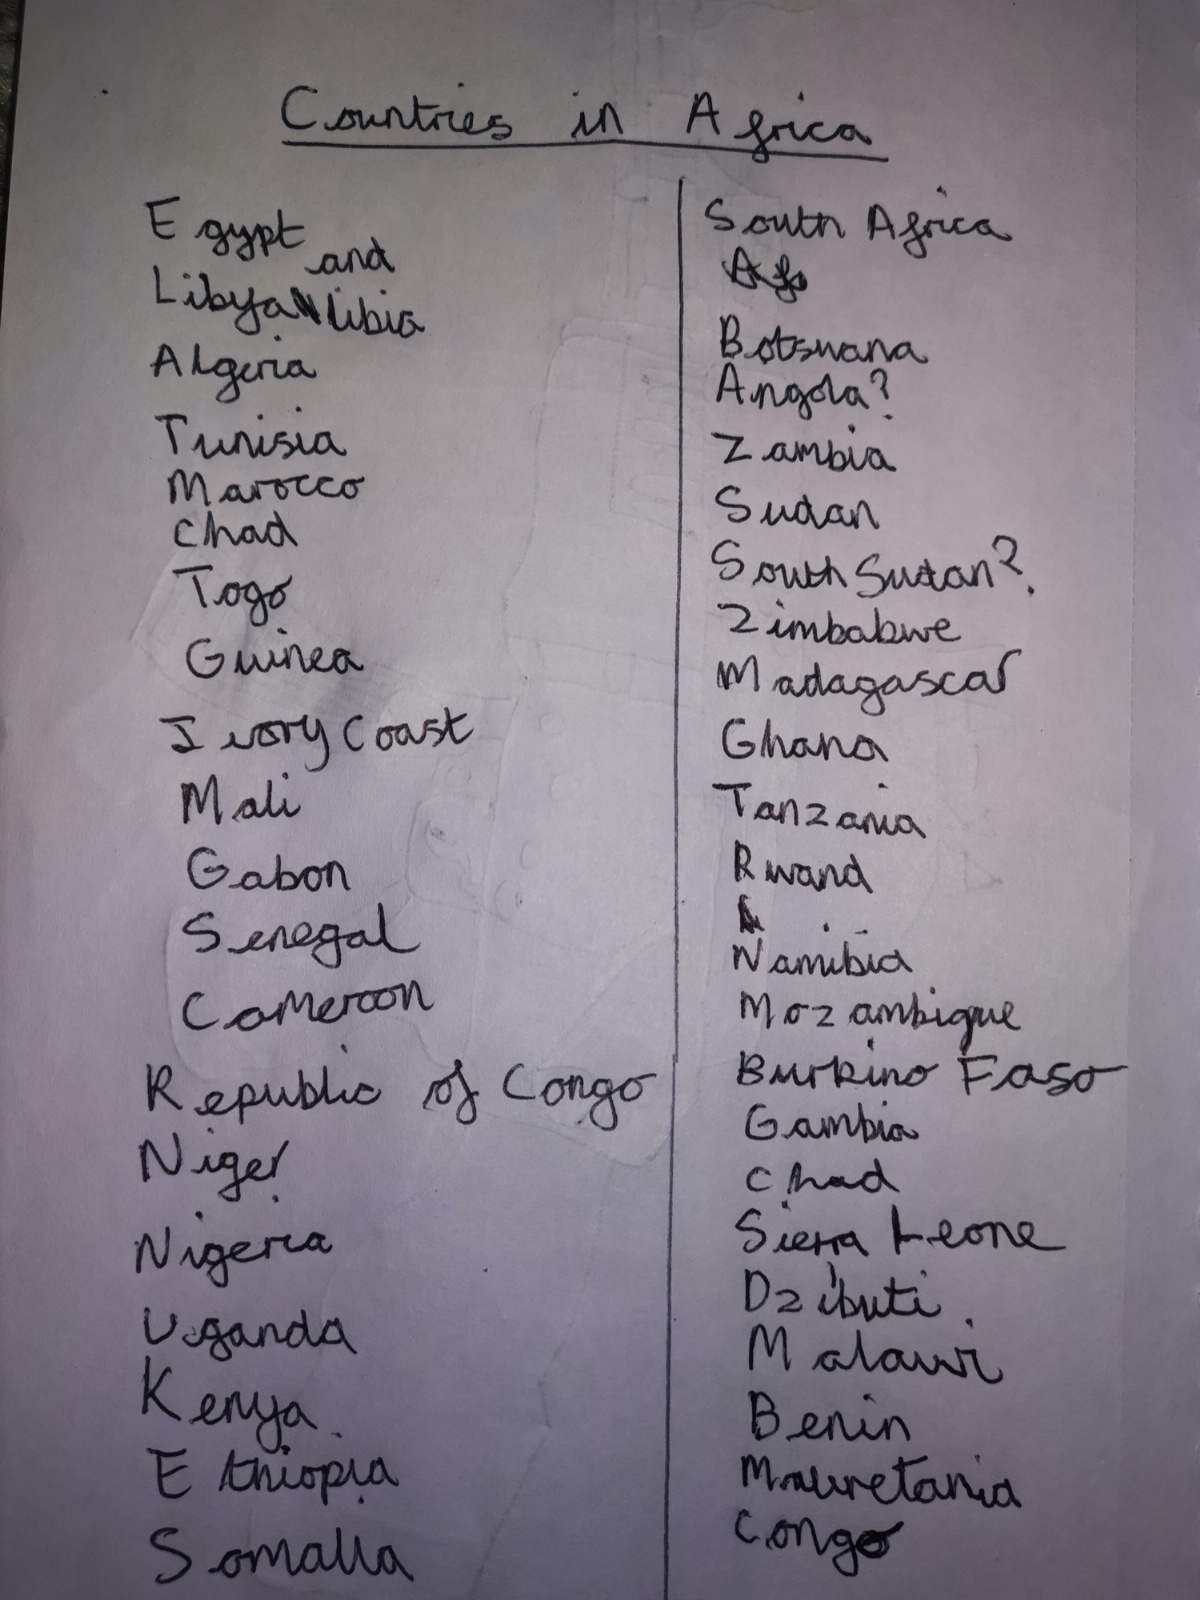 Countries in Africa
Egypt
and
Libya Nlibia
Algeria
Tunisia
Marocco
Chad
Togo
Guinea
Ivory Coast
Mali
Gabon
Senegal
Cameroon
Republic of Congo
Niger
Nigeria
Uganda
Kenya
Ethiopia
Somalia
South Africa
Botswana
Angola?
Zambia
Sudan
South Sudan?
Zimbabwe
Madagascar
Ghana
Tanzania
Rwand
Namibia
Mozambique
Burkino Faso
Gambia
Chad
Sierra Leone
Dzibuti
Malawi
Benin
Mauretania
Congo